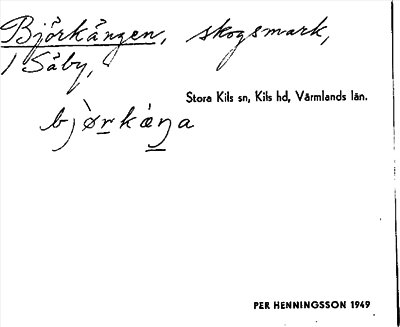 Björkängen, skogsmark,
/ Såby,
Stora Kils sn, Kils hd, Värmlands län.
bjø̀rkáŋa
PER HENNINGSSON 1949